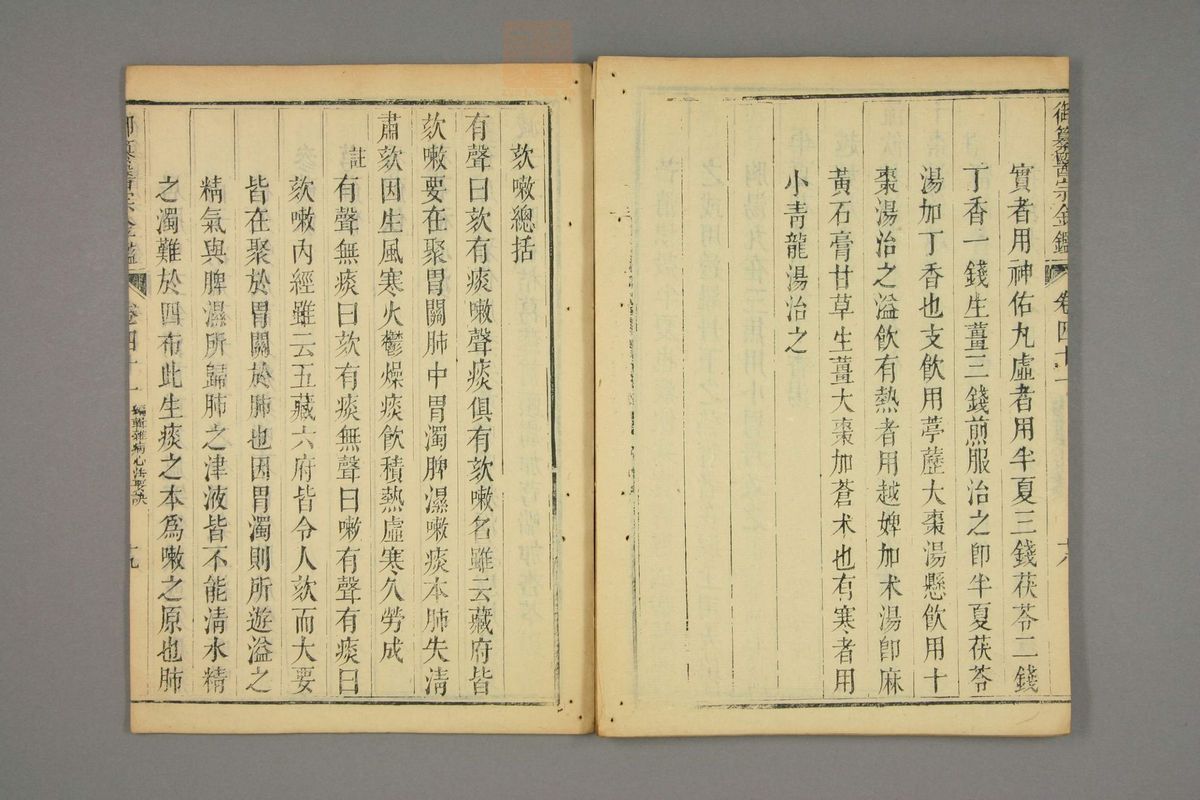 御纂醫宗金鑑 卷四十一 十八
實者用神佑丸虛者用半夏三錢茯苓二錢
丁香一錢生薑三錢煎服治之卽半夏茯苓
湯加丁香也支飮用葶藶大棗湯懸飮用十
棗湯治之溢飮有熱者用越婢加术湯卽麻
黃石膏甘草生薑大棗加蒼术也有寒者用
小靑龍湯治之
欬嗽總括
有聲曰欬有痰嗽聲痰俱有欬嗽名雖云藏府皆
欬嗽要在聚胃關肺中胃濁脾濕嗽痰本肺失淸
肅欬因生風寒火鬱燥痰飮積熱虛寒久勞成
註 有聲無痰曰欬有痰無聲曰嗽有聲有痰曰
欬嗽內經雖云五藏六府皆令人欬而大要
皆在聚於胃關於肺也因胃濁則所遊溢之
精氣與脾濕所歸肺之津液皆不能淸水精
之濁難於四布此生痰之本爲嗽之原也肺
御纂醫宗金鑑 卷四十一 編輯雜病心法要訣 十九